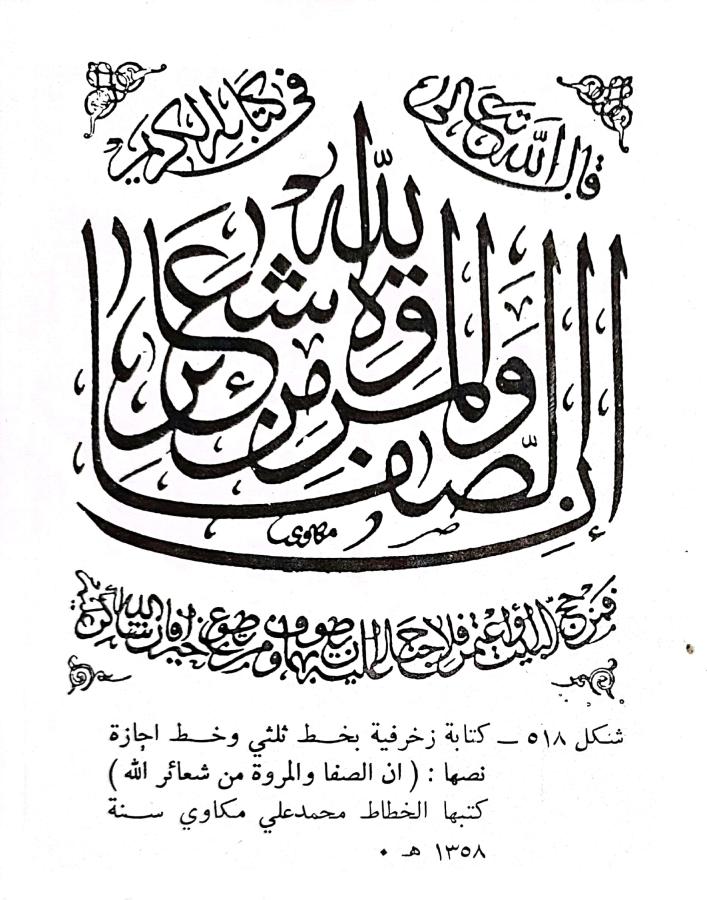 قال الله تعالى
في كتابه الكريم
إن الصفا والمروة من شعائر الله
مكاوي
فمن حج البيت أو اعتمر فلا جناح عليه أن يطوف بهما ومن تطوع خيرا فإن الله شاكر
شكل ٥١٨ ــ كتابة زخرفية بخط ثلثي وخط اجازة
نصها : ( ان الصفا والمروة من شعائر الله )
كتبها الخطاط محمدعلي مكاوي سنة
١٣٥٨ هـ ٠